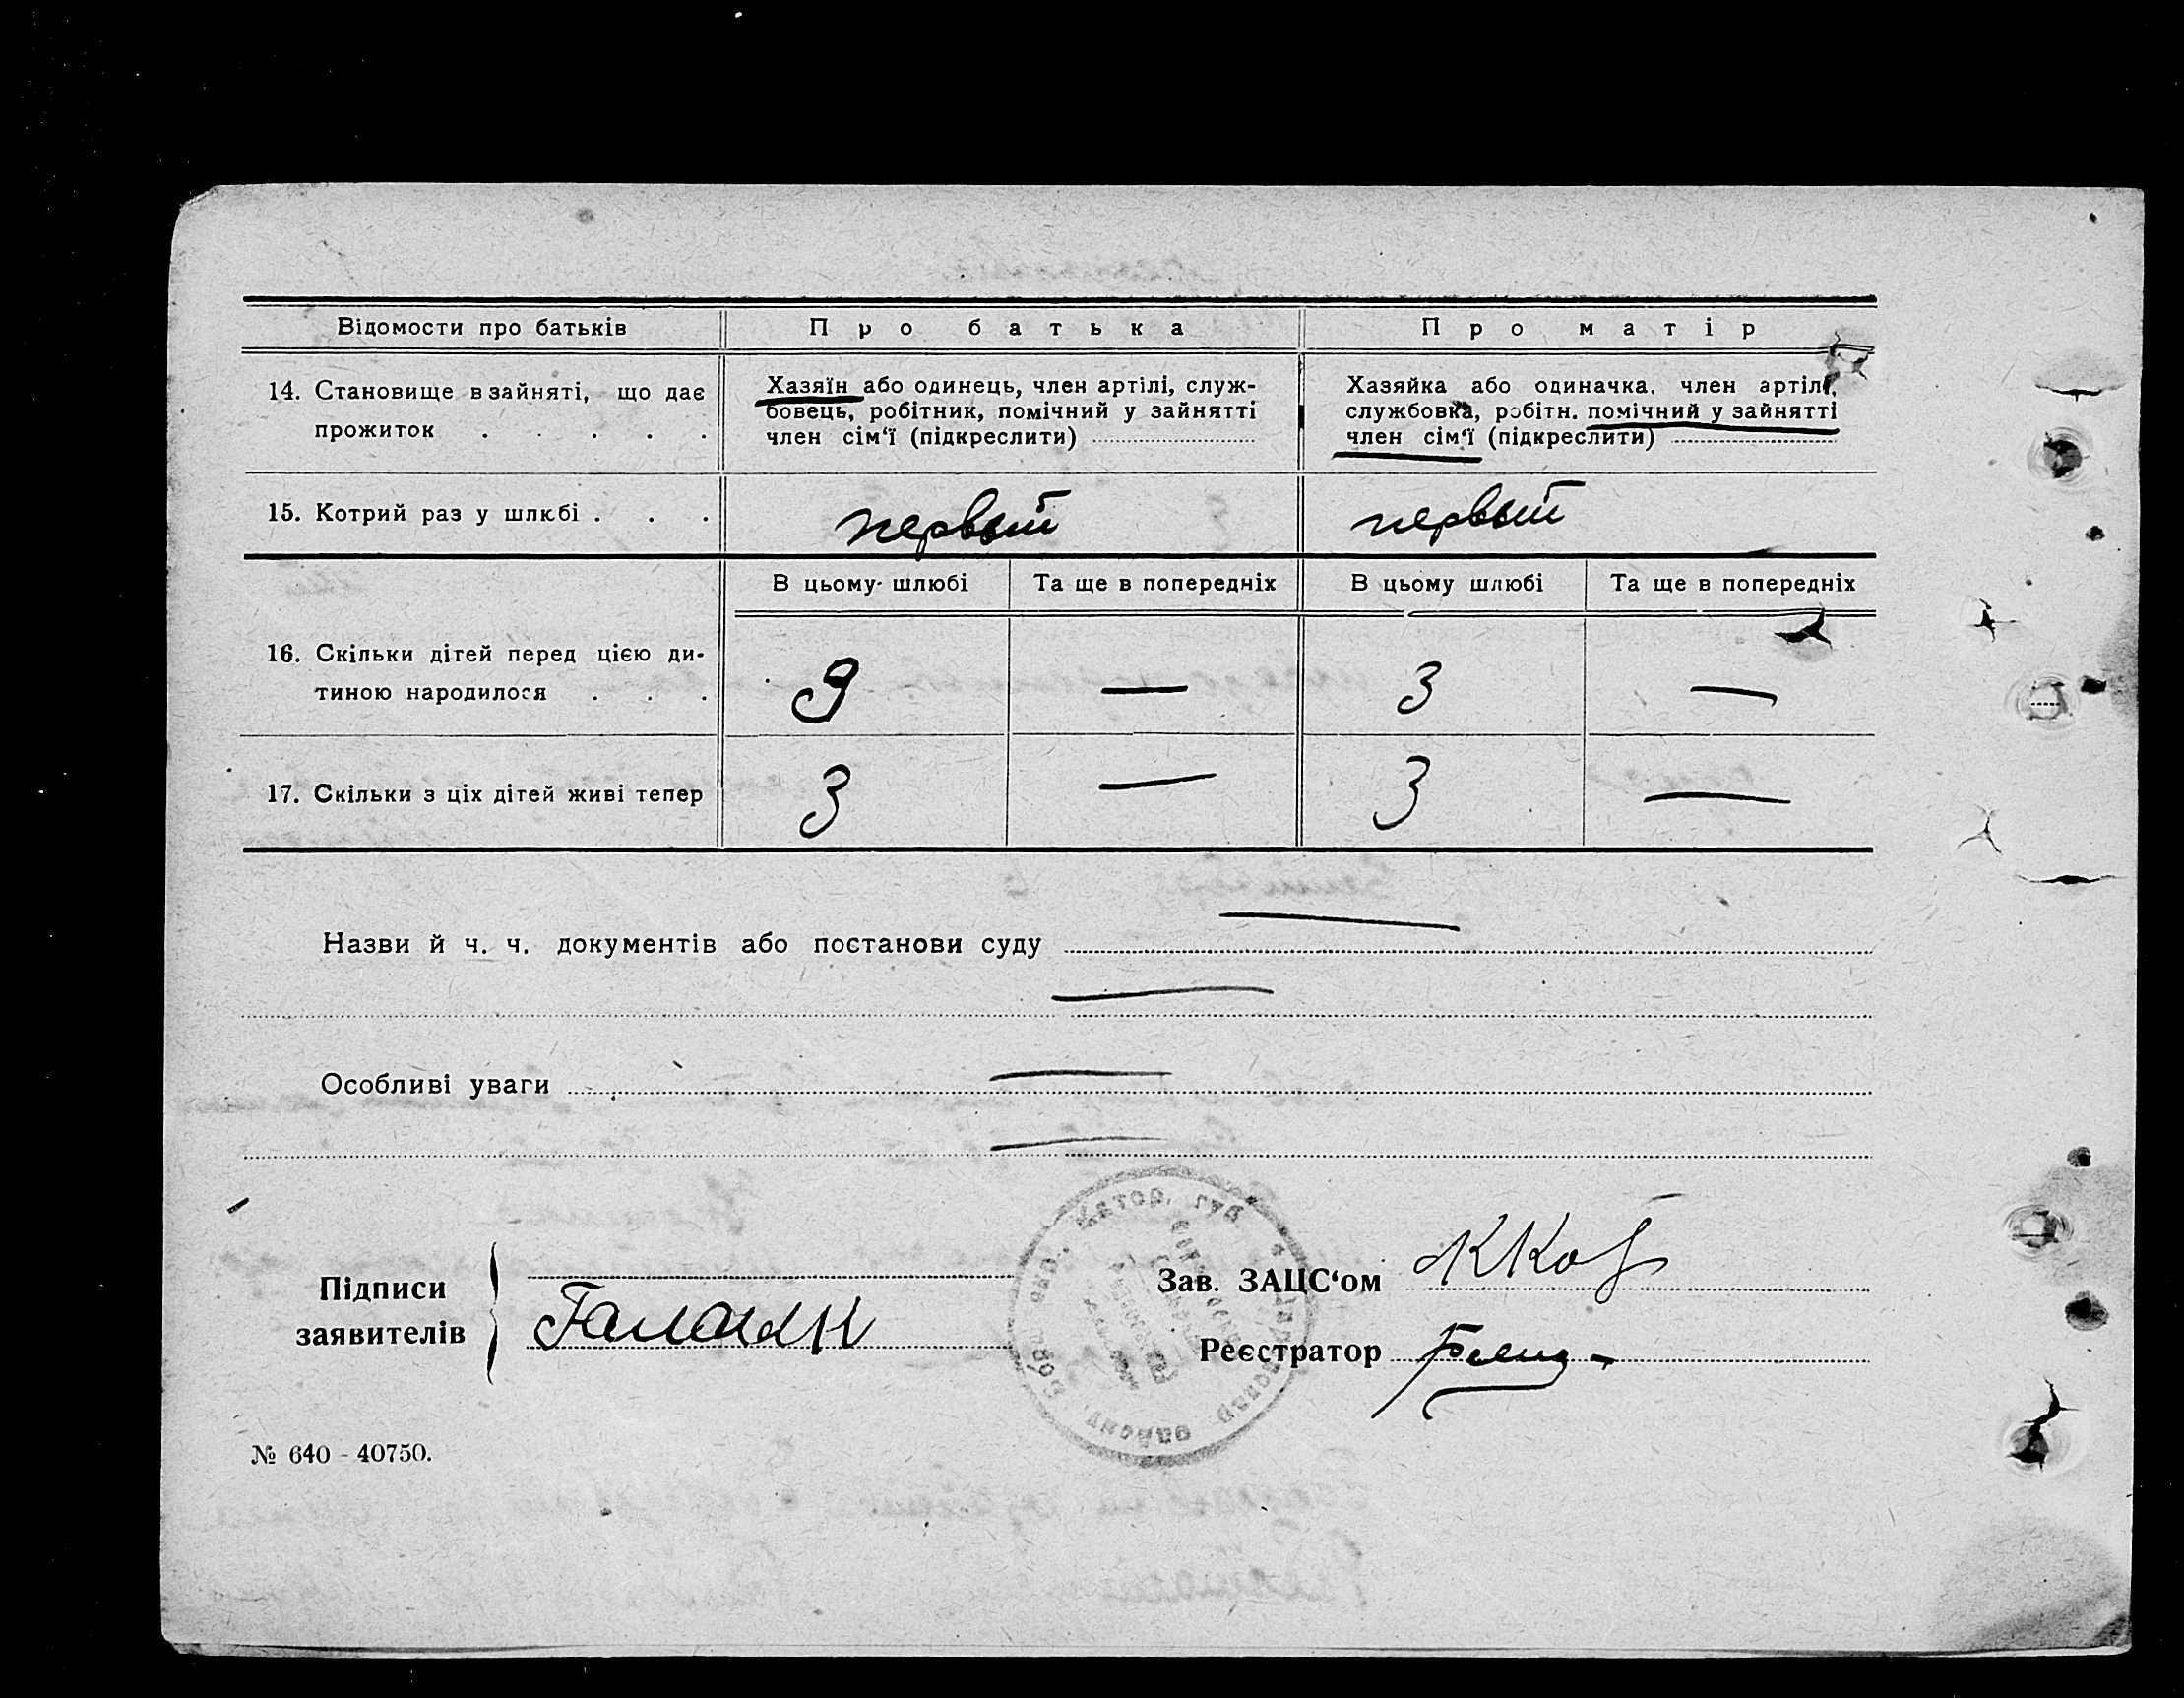 Відомости про батьків
Про батька
Про матір
14. Становище в зайняті, що дає
прожиток . . . . .
Хазяїн або одинець, член артілі, служ-
бовець, робітник, помічний у зайнятті
член сім‘ї (підкреслити)
Хазяйка або одиначка, член артілі,
службовка, робітн. помічний у зайнятті
член сім‘ї (підкреслити)
15. Котрий раз у шлюбі . . .
первый
первый
В цьому шлюбі
Та ще в попередніх
В цьому шлюбі
Та ще в попередніх
16. Скільки дітей перед цією ди-
тиною народилося . . .
3
—
3
—
17. Скільки з ціх дітей живі тепер
3
—
3
—
Назви й ч. ч. документів або постанови суду —
—
Особливі уваги —
—
Підписи
заявителів
Галацан
Зав. ЗАЦС‘ом
Реєстратор
№ 640 - 40750.